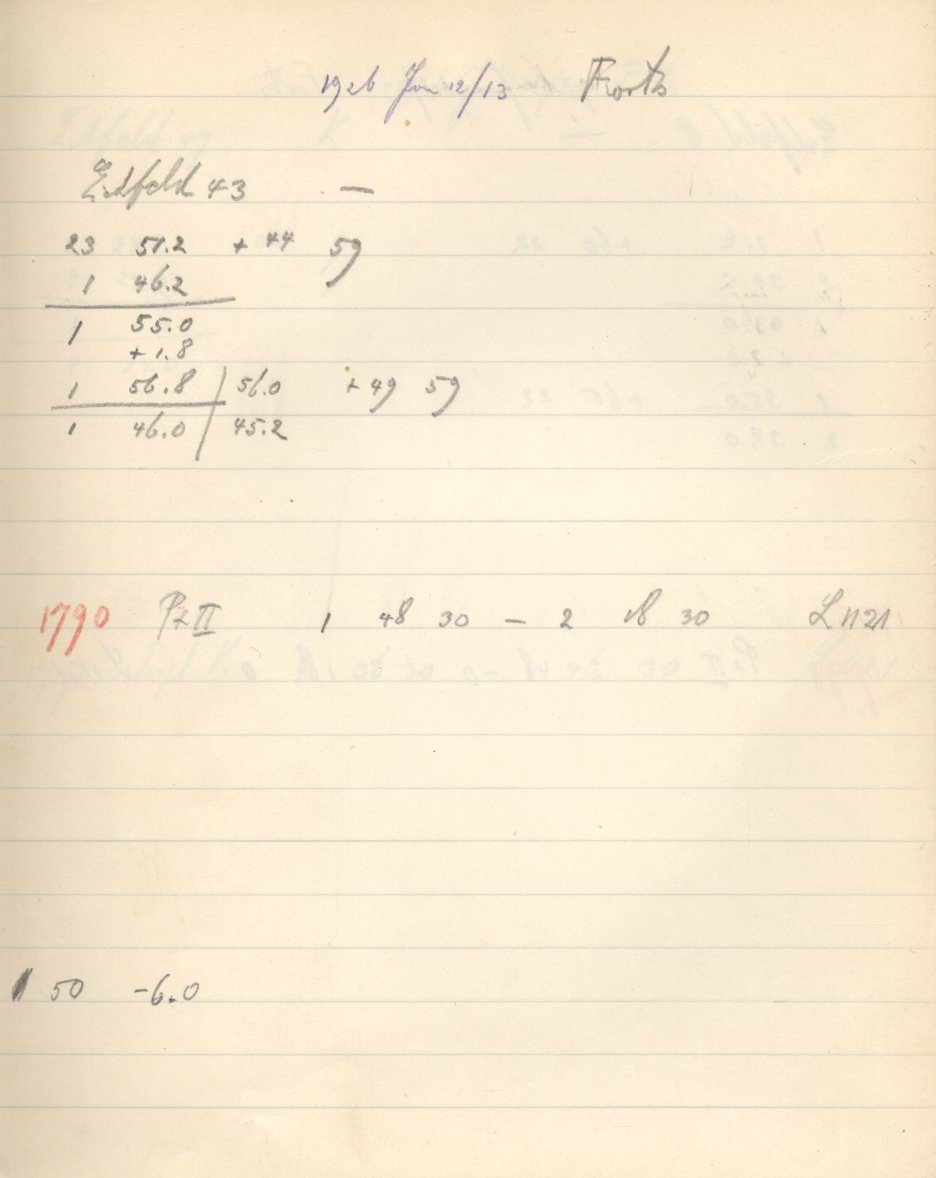 1926 Jan 12/13 Forts
Eitfeld 43 —
23 51.2 + 44 59
1 46.2
1 55.0
+ 1.8
1 56.8 | 56.0 + 49 59
1 46.0 | 45.2
1790 Pt II 1 48 30 — 2 18 30 L 1121
50 -6.0